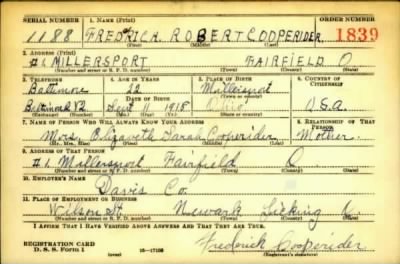 SERIAL NUMBER 1. NAME (Print) ORDER NUMBER
1188 FREDRICK ROBERT COOPERIDER 1839
(First) (Middle) (Last)
2. ADDRESS (Print)
#1 MILLERSPORT FAIRFIELD O
(Number and street or R. F. D. number) (Town) (County) (State)
3. TELEPHONE 4. AGE IN YEARS 5. PLACE OF BIRTH 6. COUNTRY OF CITIZENSHIP
Baltimore 22 Millersport
DATE OF BIRTH (Town or county)
Baltimore Sept 11 1918 Ohio U.S.A.
(Exchange) (Number) (Mo.) (Day) (Yr.) (State or country)
7. NAME OF PERSON WHO WILL ALWAYS KNOW YOUR ADDRESS 8. RELATIONSHIP OF THAT PERSON
Mrs. Elizabeth Sarah Cooperider Mother.
(Mr., Mrs., Miss) (First) (Middle) (Last)
9. ADDRESS OF THAT PERSON
#1 Millersport Fairfield O
(Number and street or R. F. D. number) (Town) (County) (State)
10. EMPLOYER'S NAME
Davis Co.
11. PLACE OF EMPLOYMENT OR BUSINESS
Wilson St Newark Licking O
(Number and street or R. F. D. number) (Town) (County) (State)
I AFFIRM THAT I HAVE VERIFIED ABOVE ANSWERS AND THAT THEY ARE TRUE.
REGISTRATION CARD
D. S. S. FORM 1 (over) 16-17105 Frederick Cooperider
(Registrant's signature)